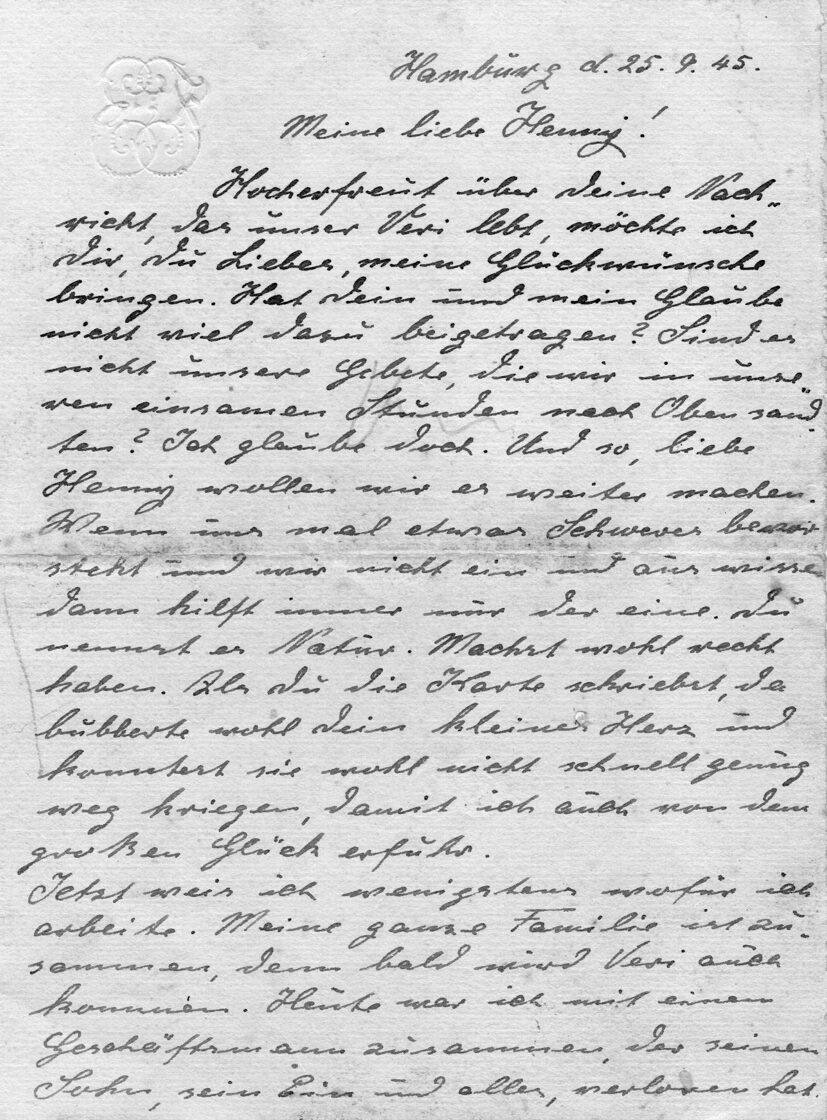 Hamburg d. 25. 9. 45.
Meine liebe Henny!
Hocherfreut über deine Nach„
richt, das unser Veri lebt, möchte ich
dir, du Liebes, meine Glückwünsche
bringen. Hat dein und mein Glaube
nicht viel dazu beigetragen? Sind es
nicht unsere Gebete, die wir in unse„
ren einsamen Stunden nach Oben sand„
ten? Ich glaube doch. Und so, liebe
Henny wollen wir es weiter machen.
Wenn uns mal etwas Schweres bevor
steht und wir nicht ein und aus wissen
dann hilft immer nur der eine. du
nennst es Natur. Machst wohl recht
haben. Als du die Karte schriebst, da
bubberte wohl dein kleines Herz und
konntest sie wohl nicht schnell genug
weg kriegen, damit ich auch von dem
großen Glück erfuhr.
Jetzt weis ich wenigstens wofür ich
arbeite. Meine ganze Familie ist zu„
sammen, denn bald wird Veri auch
kommen. Heute war ich mit einem
Geschäftsmann zusammen, der seinen
Sohn, sein Ein und alles, verloren hat.